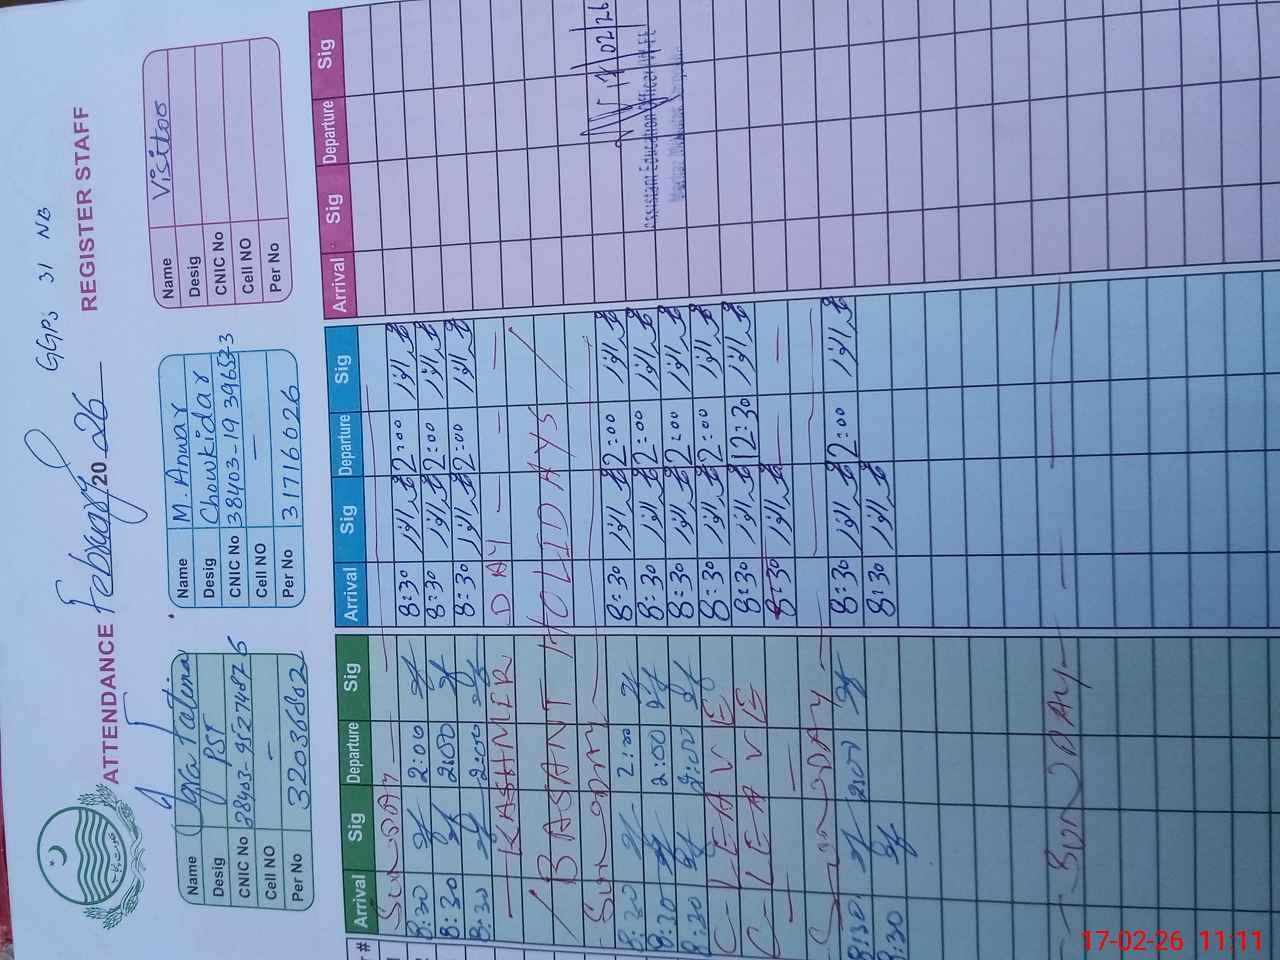 GGPS 31 NB
ATTENDANCE February 2026 REGISTER STAFF
Name Iqra Fatima
Desig PST
CNIC No 38403-9527487-6
Cell NO —
Per No 32036882
Name M. Anwar
Desig Chowkidar
CNIC No 38403-1939657-3
Cell NO —
Per No 31716026
Name Visitor
Desig
CNIC No
Cell NO
Per No
Arrival Sig Departure Sig Arrival Sig Departure Sig Arrival Sig Departure Sig
SUNDAY
8:30 2:00 8:30 2:00
8:30 2:00 8:30 2:00
8:30 2:00 8:30 2:00
— KASHMIR DAY — — —
/ BASANT HOLIDAYS /
Sunday
8:30 2:00 8:30 2:00
8:30 2:00 8:30 2:00
8:30 2:00 8:30 2:00
C- LEAVE 8:30 2:00
C- LEAVE 8:30 12:30
— — 8:30 —
SUNDAY
8:30 2:00 8:30 2:00
8:30 8:30
SUNDAY
17/02/26
Assistant Education Officer
17-02-26 11:11